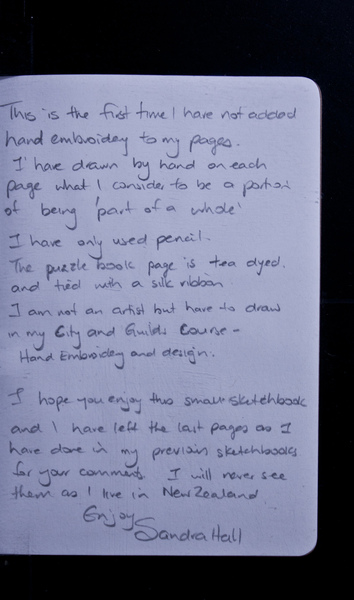 This is the first time I have not added
hand embroidey to my pages.
I have drawn by hand on each
page what I consider to be a portion
of being 'part of a whole'
I have only used pencil.
The puzzle book page is tea dyed.
and tied with a silk ribbon
I am not an artist but have to draw
in my City and Guilds Course -
Hand Embroidey and design.
I hope you enjoy this small sketchbook
and I have left the last pages as I
have done in my previous sketchbooks
for your comments. I will never see
them as I live in New Zealand.
Enjoy
Sandra Hall